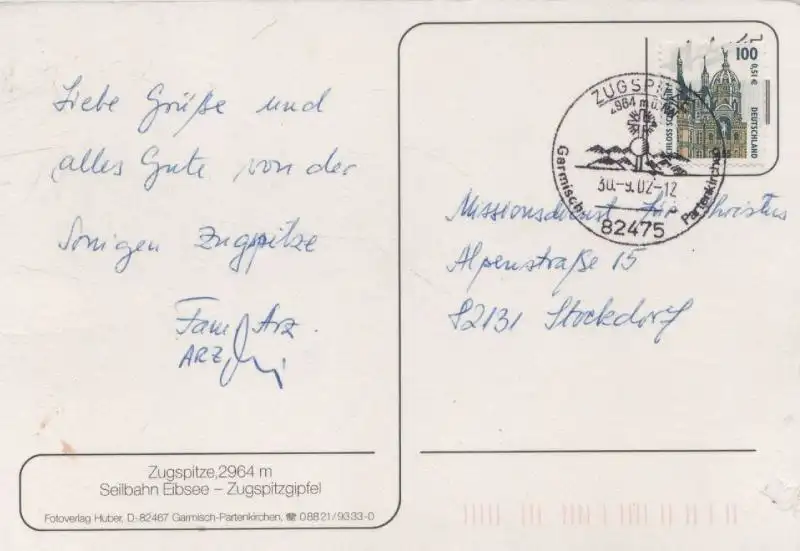 Liebe Grüße und
alles Gute von der
Sonigen Zugspitze
Fam. Arz.
ARZ
Zugspitze, 2964 m
Seilbahn Eibsee – Zugspitzgipfel
Fotoverlag Huber, D-82467 Garmisch-Partenkirchen, ☎ 08821/9333-0
100
0,51 €
DEUTSCHLAND
SCHLOSS
ZUGSPITZE
2964 m
30.-9.02-12
Garmisch-
Partenkirchen
82475
Missionsdienst für Christus
Alpenstraße 15
82131 Stockdorf